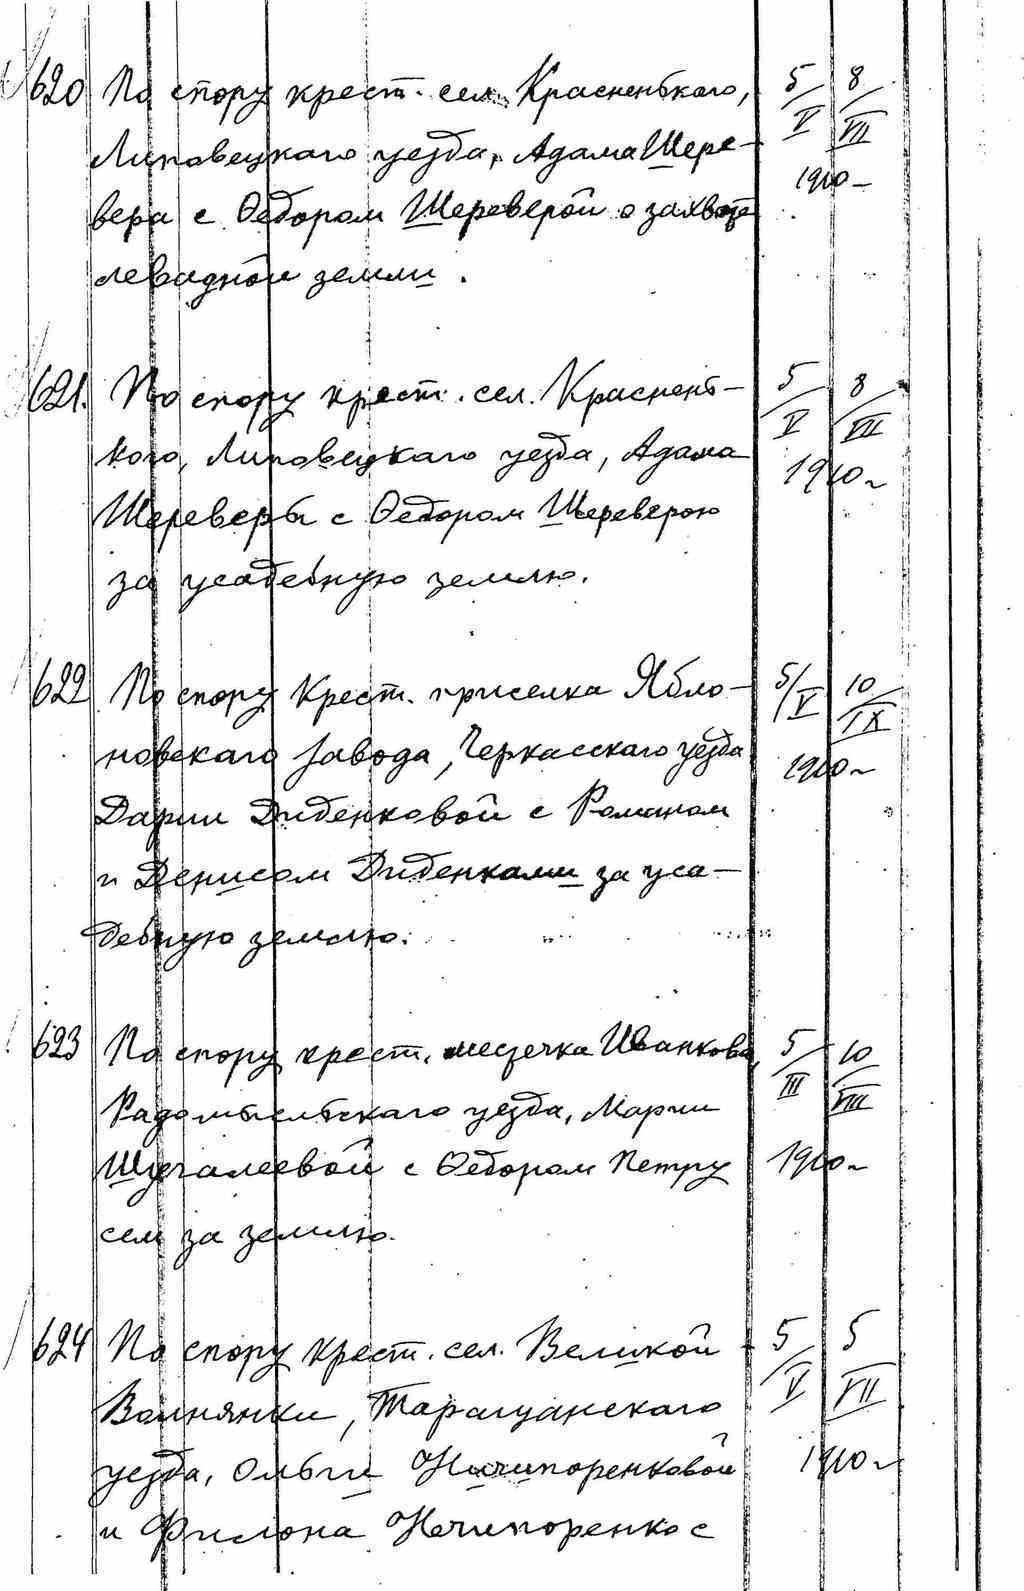 620 По спору крест. сел. Красненького, 5/V 8/VII
Липовецкаго уезда, Адама Шере-
1910-
вера с Федором Шереверой о захвате
левадной земли.
621. По спору крест. сел. Краснень- 5/V 8/VII
кого, Липовецкаго уезда, Адама
1910 г
Шереверы с Федором Шереверою
за усадебную землю.
622 По спору Крест. приселка Ябло- 5/V 10/IX
новскаго завода, Черкасскаго уезда
1910 г
Дарии Диденковой с Романом
и Денисом Диденками за уса-
дебную землю.
623 По спору крест. месечка Иванкова, 5/III 10/VIII
Радомысльскаго уезда, Марии
Шугалеевой с Федором Петру 1910 г
сем за землю.
624 По спору крест. сел. Великой 5/V 5/VII
Волнянки, Таращанскаго
уезда, Ольги Ничипоренковой 1910 г
и Филона Нечипоренко с